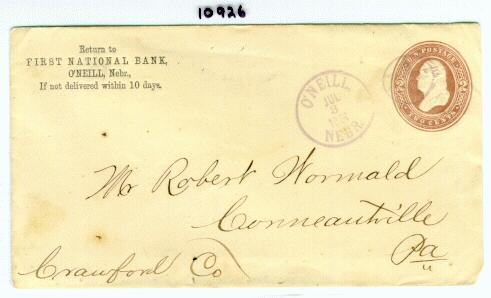 10926
Return to
FIRST NATIONAL BANK,
O'NEILL, Nebr.,
If not delivered within 10 days.
O'NEILL,
JUL
3
NEBR.
U.S. POSTAGE
TWO CENTS
2
2
Mr Robert Wormald
Conneautville
Pa
Crawford Co